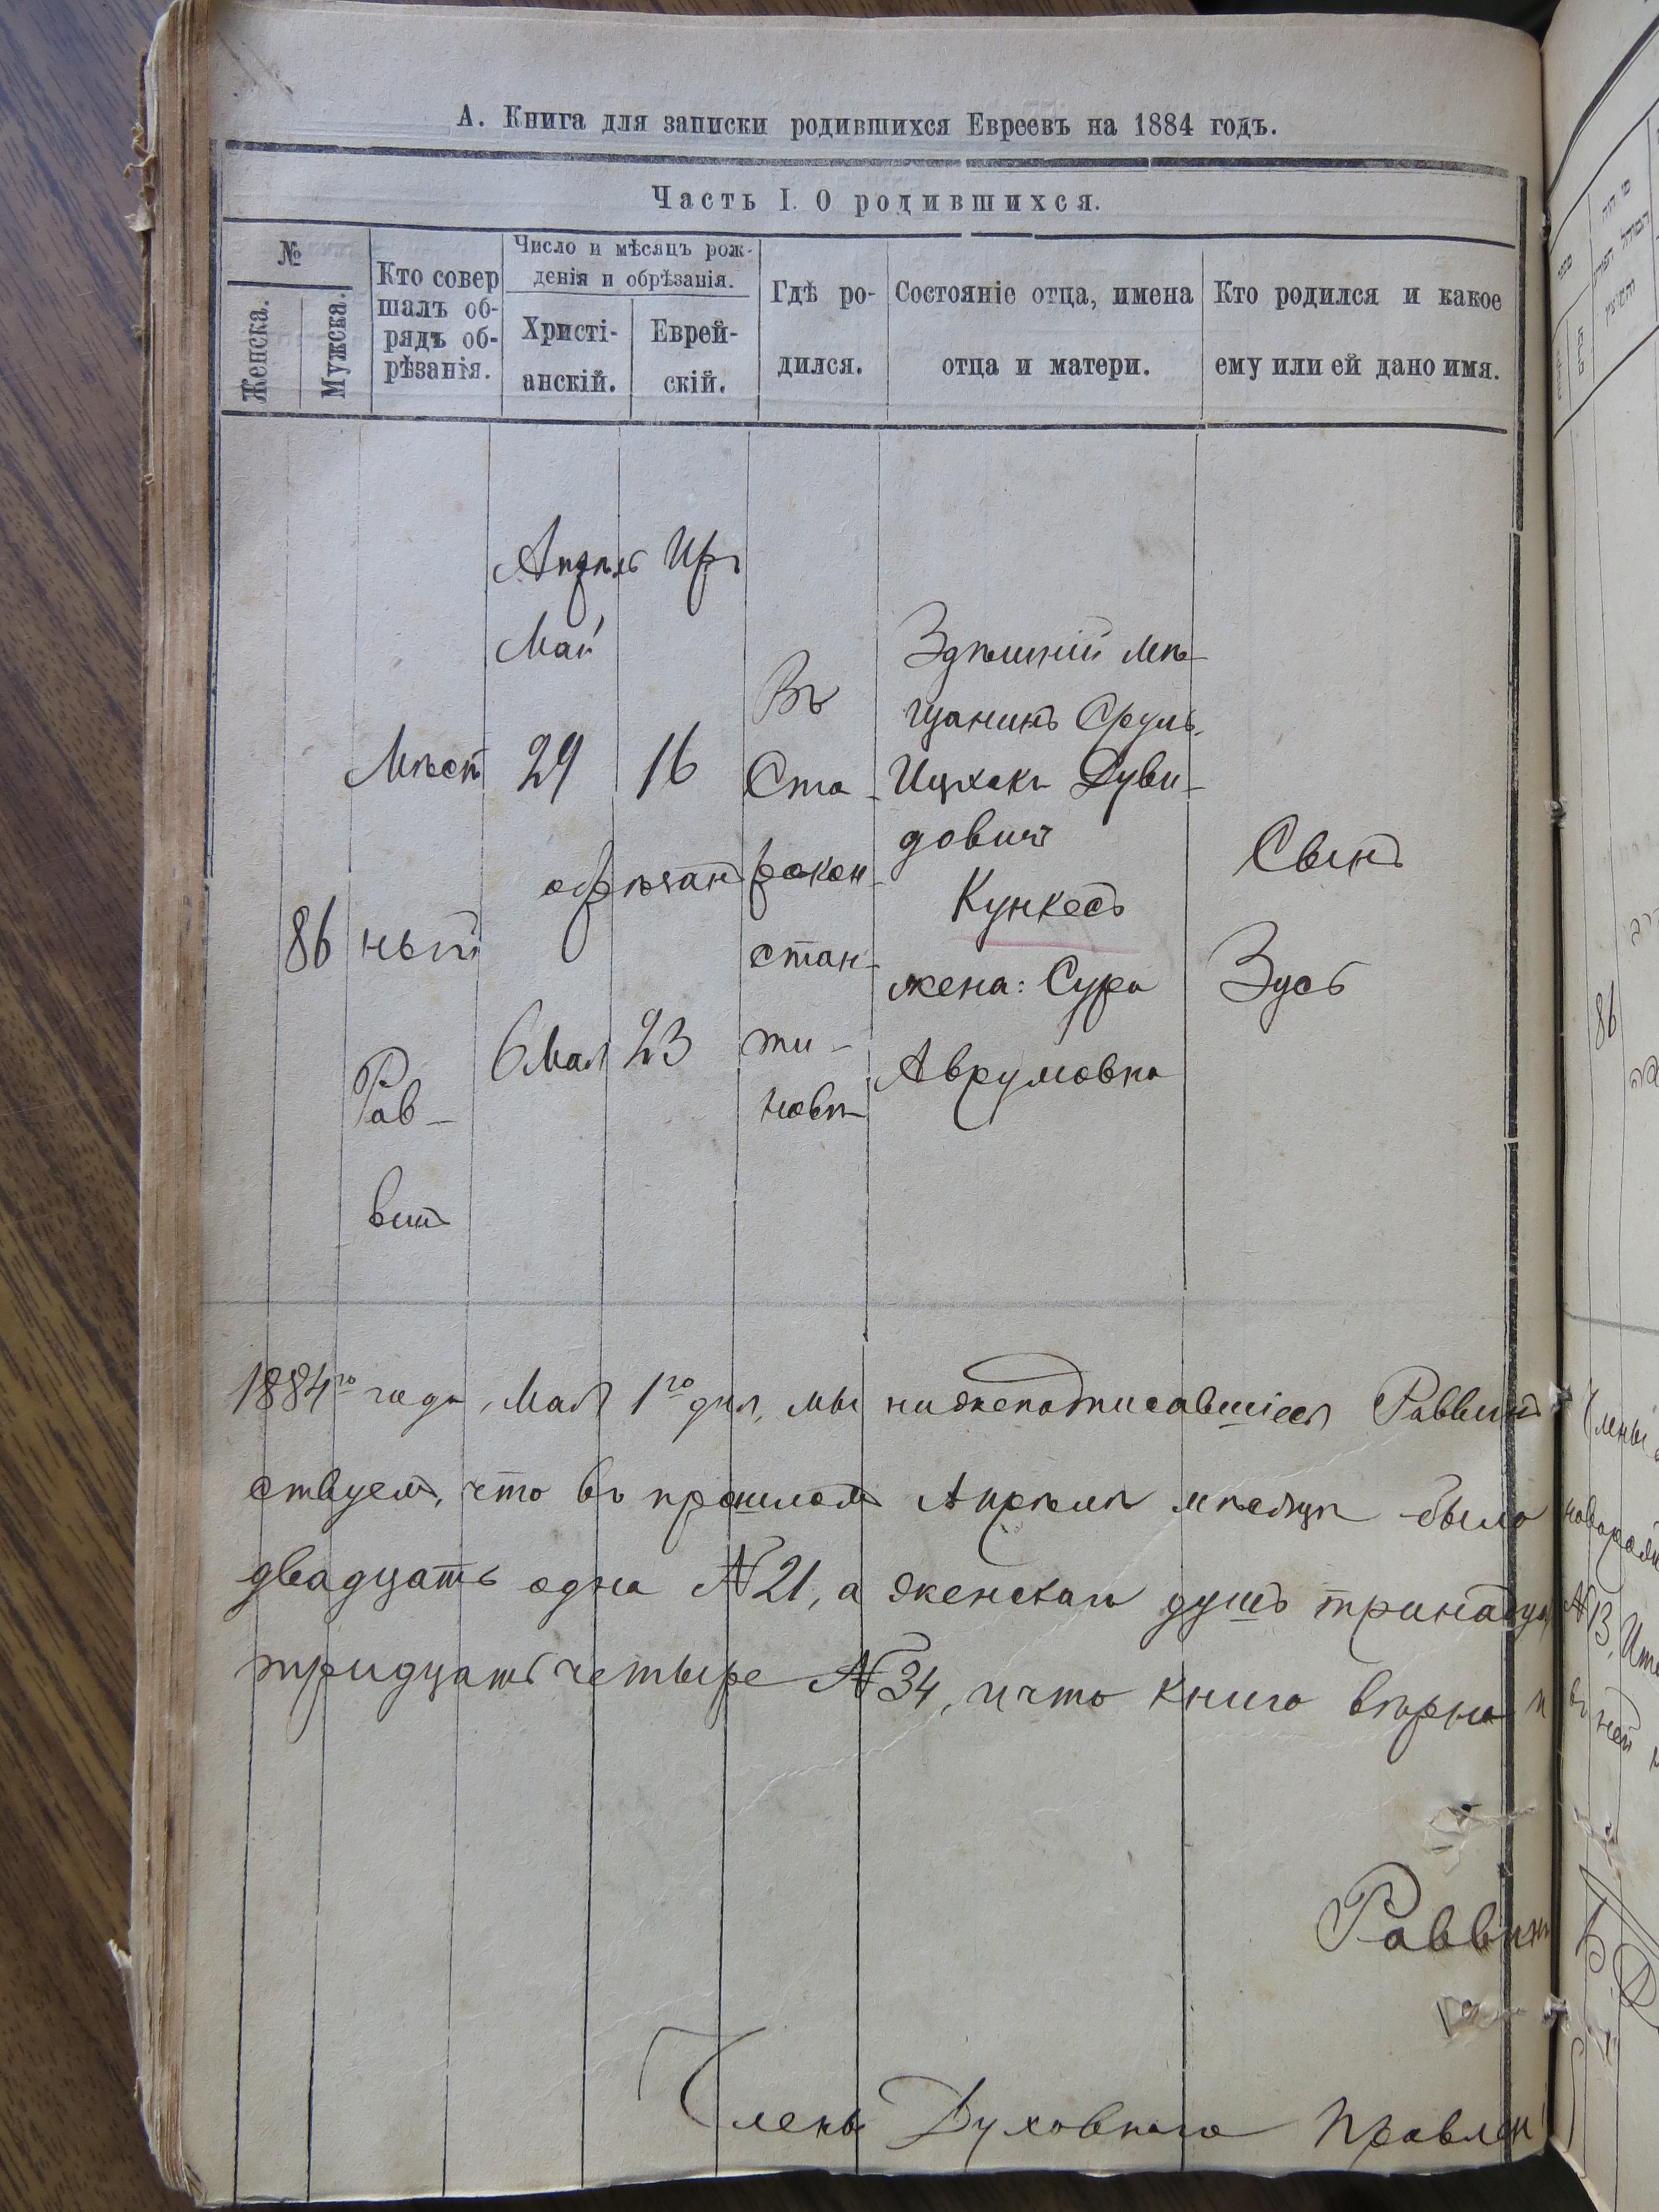 А. Книга для записки родившихся Евреевъ на 1884 годъ.
Часть I. О родившихся.
№
Женска.
Мужска.
Кто совер
шалъ об-
рядъ об-
рѣзанія.
Число и мѣсяцъ рож-
денія и обрѣзанія.
Христі-
анскій.
Еврей-
скій.
Гдѣ ро-
дился.
Состояніе отца, имена
отца и матери.
Кто родился и какое
ему или ей дано имя.
86
Мѣст
ный
Рав-
винъ
Апрѣль
Май
29
обрѣзанъ
6 Мая
Иръ
16
23
Въ
Ста-
рокон-
стан-
ти-
новѣ
Здѣшній мѣ-
щанинъ Сруль-
Ицхакъ Дуви-
довичъ
Кункесъ
жена: Сура
Аврумовна
Сынъ
Зусь
1884го года, Мая 1го дня, мы нижеподписавшіеся Раввинъ
ствуемъ, что въ прошломъ Апрѣлѣ мѣсяцѣ было
двадцать одна № 21, а женскаго душъ тринадца
тридцать четыре № 34, и что книга вѣрна и
Раввинъ
Члены Духовнаго Правлен
86
Члены
новорожд
№ 13, Ито
въ ней